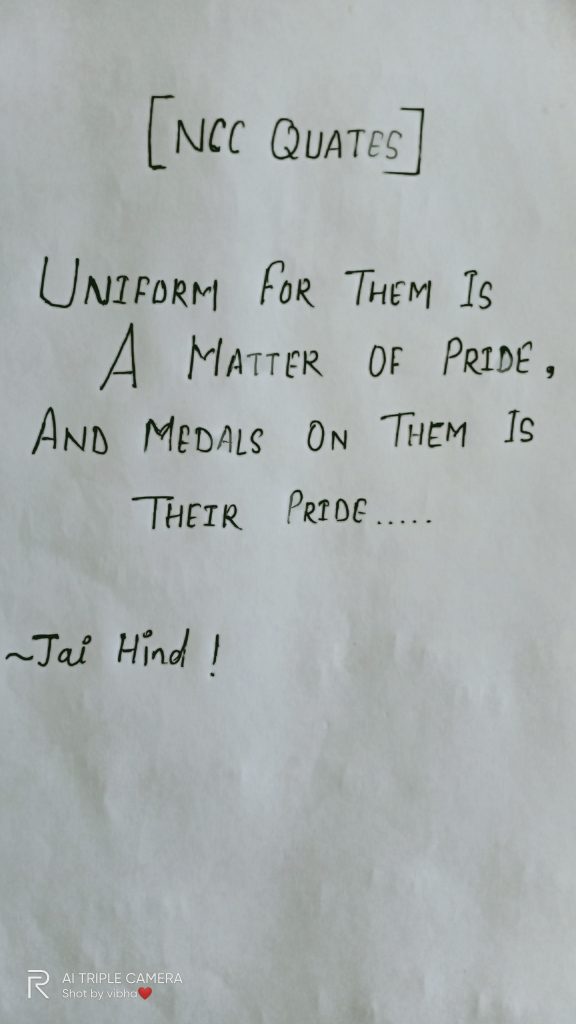 [NCC QUATES]
UNIFORM FOR THEM IS
A MATTER OF PRIDE,
AND MEDALS ON THEM IS
THEIR PRIDE.....
~Jai Hind !
AI TRIPLE CAMERA
Shot by vibha❤️